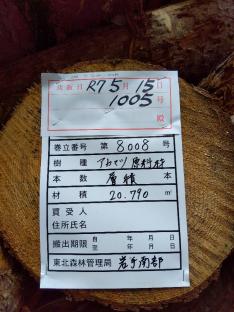 決議日 R7 5月 15日
1005号
殿
巻立番号 第 8008 号
樹種 アカマツ 原料材
本数 層積 本
材積 20.790 ㎥
買受人
住所氏名
搬出期限 自 年 月 日
至 年 月 日
東北森林管理局 岩手南部